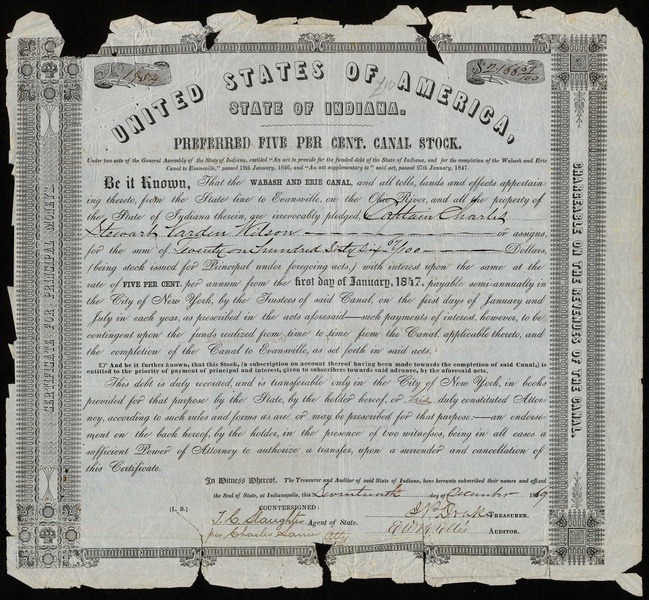 No. 1854
$2166 67/100
UNITED STATES OF AMERICA,
STATE OF INDIANA.
PREFERRED FIVE PER CENT. CANAL STOCK.
Under two acts of the General Assembly of the State of Indiana, entitled "An act to provide for the funded debt of the State of Indiana, and for the completion of the Wabash and Erie
Canal to Evansville," passed 19th January, 1846, and "An act supplementary to" said act, passed 27th January, 1847.
Be it Known, That the WABASH AND ERIE CANAL, and all tolls, lands and effects appertain
ing thereto, from the State line to Evansville, on the Ohio River, and all the property of
the State of Indiana therein, are irrevocably pledged, Captain Charles
Stewart Vardon Wilson or assigns,
for the sum of Twenty one hundred Sixty Six 67/100 Dollars,
(being stock issued for Principal under foregoing acts,) with interest upon the same at the
rate of FIVE PER CENT. per annum from the first day of January, 1847, payable semi-annually in
the City of New York, by the Trustees of said Canal, on the first days of January and
July in each year, as prescribed in the acts aforesaid—such payments of interest, however, to be
contingent upon the funds realized from time to time from the Canal, applicable thereto, and
the completion of the Canal to Evansville, as set forth in said acts.
☞ And be it further known, that this Stock, (a subscription on account thereof having been made towards the completion of said Canal,) is
entitled to the priority of payment of principal and interest, given to subscribers towards said advance, by the aforesaid acts.
This debt is duly recorded, and is transferable only in the City of New York, in books
provided for that purpose by the State, by the holder hereof, or his duly constituted Attor
ney, according to such rules and forms as are or may be prescribed for that purpose:—an endorse
ment on the back hereof, by the holder, in the presence of two witnesses, being in all cases a
sufficient Power of Attorney to authorize a transfer, upon a surrender and cancellation of
this Certificate.
In Witness Whereof, The Treasurer and Auditor of said State of Indiana, have hereunto subscribed their names and affixed
the Seal of State, at Indianapolis, this Seventeenth day of December 1849
(L. S.)
COUNTERSIGNED:
T. C. Slaughter Agent of State.
per Charles Atty
J P Drake TREASURER.
E W H Ellis AUDITOR.
CERTIFICATE FOR PRINCIPAL MONEYS.
CHARGEABLE ON THE REVENUES OF THE CANAL.